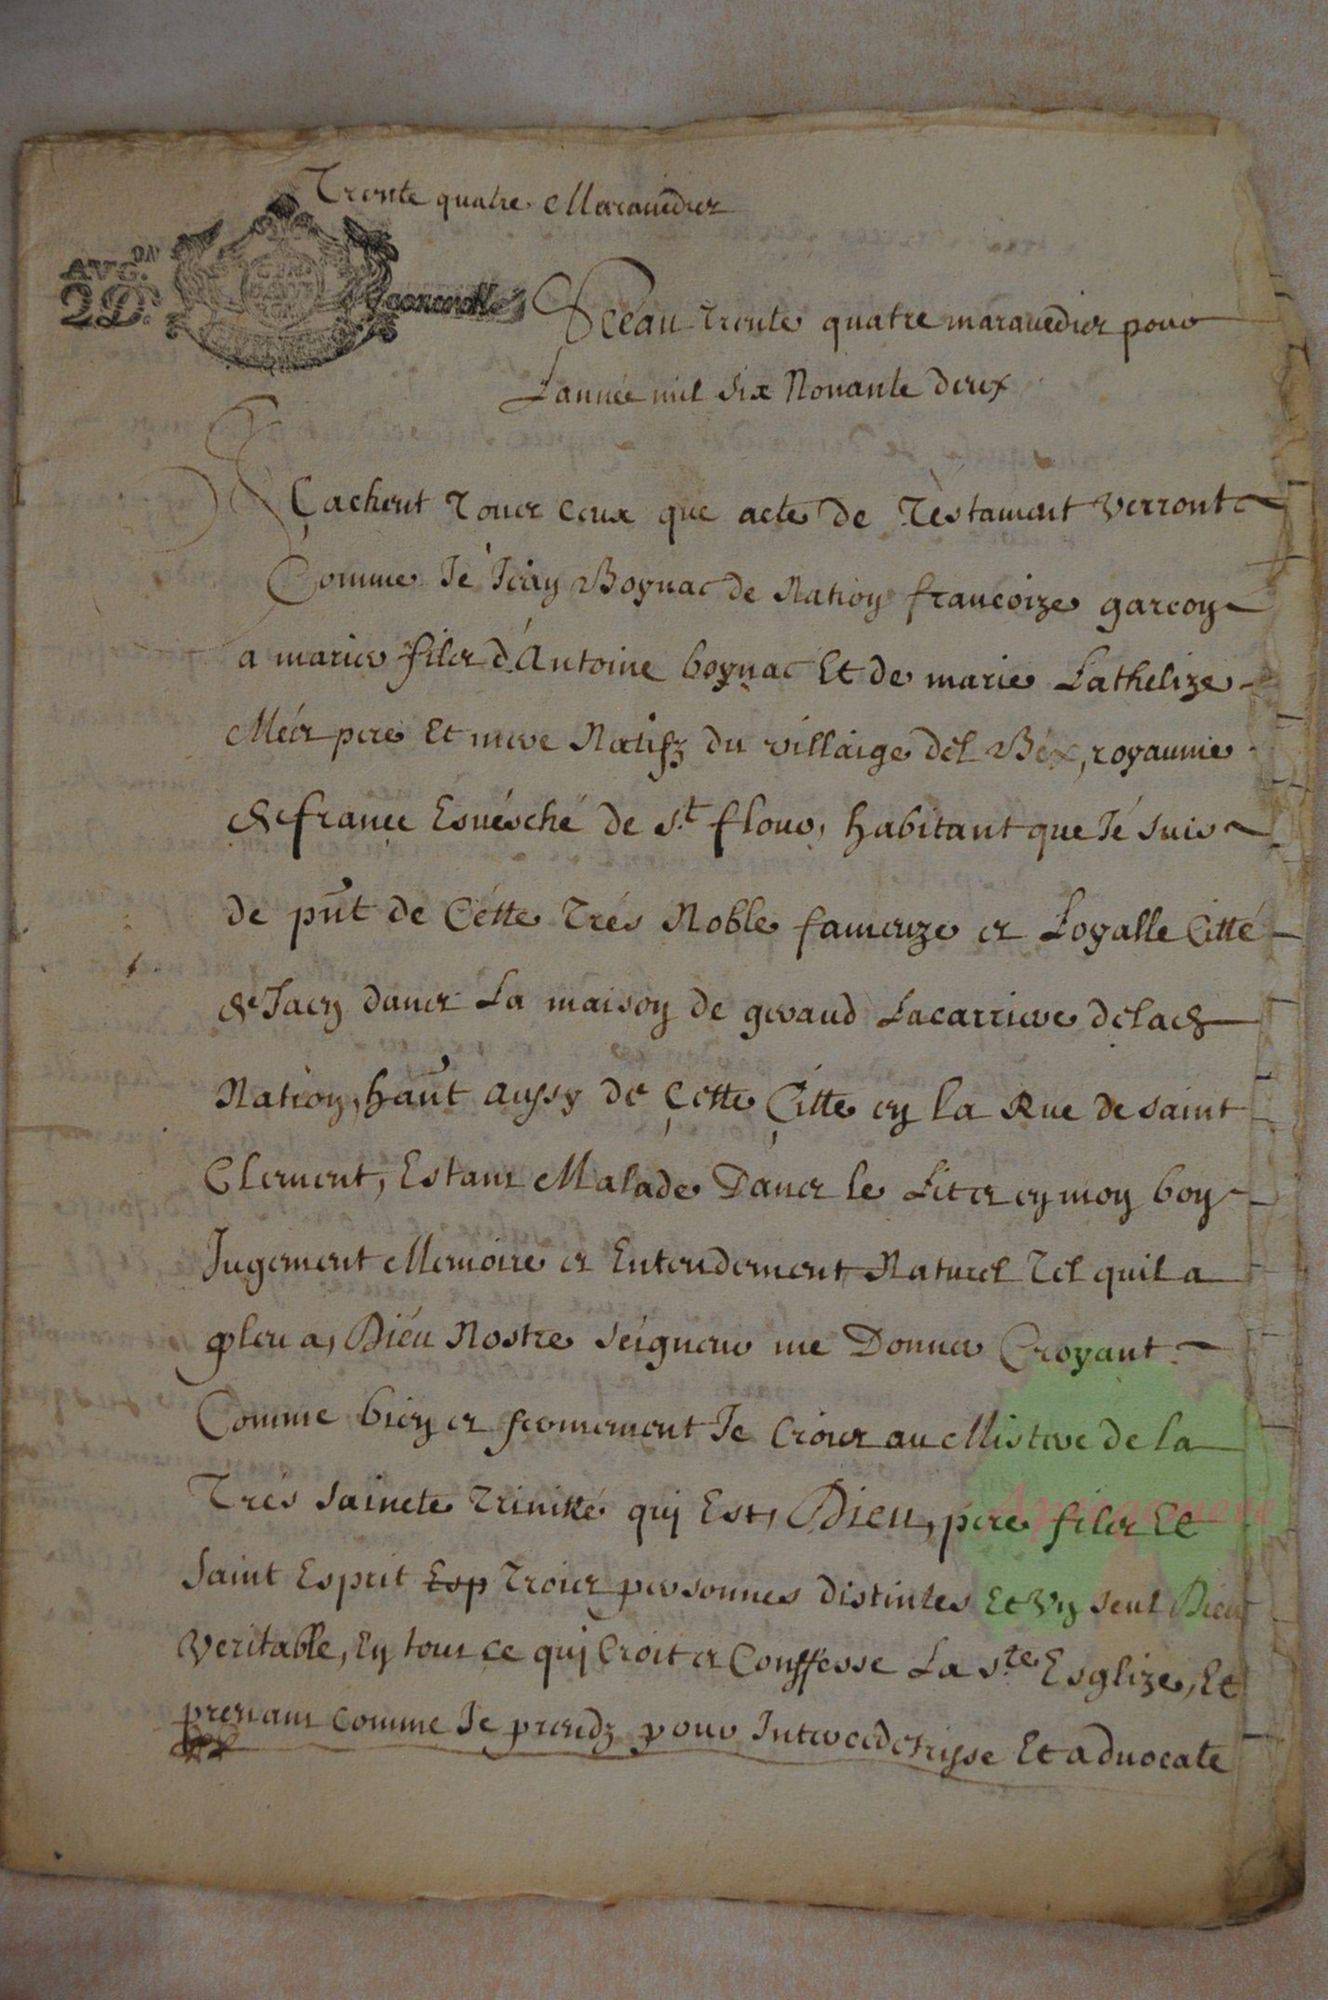 Trente quatre Maravedis
AVG.ON
2D.s
Sceau trente quatre maravedis pour
Lannée mil six Nonante deux
Sçachent tous ceux que acte de Testament verront
Comme Je Jean Boynac de Nation francoize garcon
a marier fils d'Antoine boynac Et de marie Lathelize
Més pere Et mere Natifz du villaige del Bex, royaume
de france Esuésché de S.t flour, habitant que Jé suis
de pñt de Cétte Trés Noble fameuze et Loyalle Citté
de Jaen dans La maison de geraud Lacarriere de lad.
Nation, hañt aussy de Cette Citte en la Rue de saint
Clement, Estant Malade Dans le Lict et en mon bon
Jugement Memoire et Entendement Naturel Tel quil a
pleu a, Diéu Nostre seigneur me Donner Croyant
Comme bien et fermement Je Crois au Mistere de la
Trés Saincte Trinitté qui Est, Dieu, pere fils Et
Saint Esprit Esp Trois personnes distintes Et Vn seul Dieu
Veritable, En tout ce qui Croit et Conffesse La S.te Esglize, Et
prenant comme Je prendz pour Intercedetrisse Et aduocate